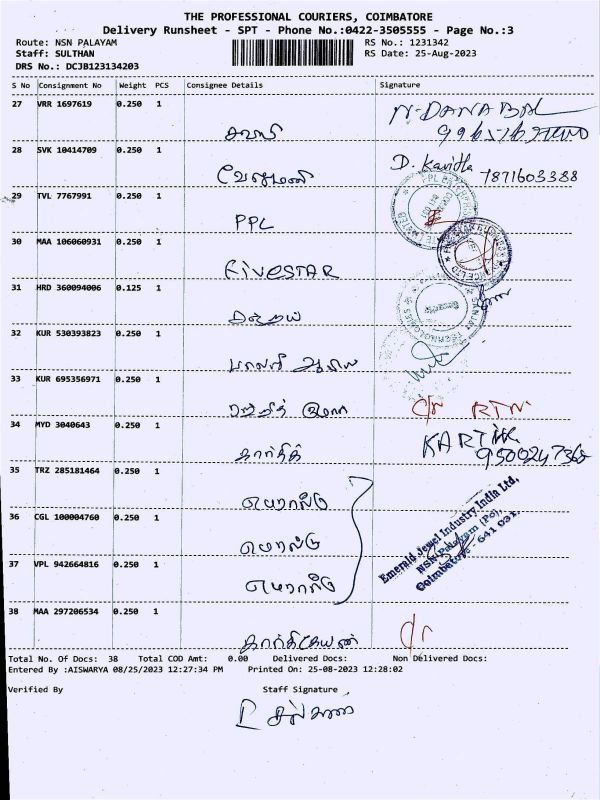 THE PROFESSIONAL COURIERS, COIMBATORE
Delivery Runsheet - SPT - Phone No.:0422-3505555 - Page No.:3
Route: NSN PALAYAM RS No.: 1231342
Staff: SULTHAN RS Date: 25-Aug-2023
DRS No.: DCJB123134203
S No Consignment No Weight PCS Consignee Details Signature
27 VRR 1697619 0.250 1 N-DANABAL
28 SVK 10414709 0.250 1 D. Kavitha
வேலுமணி 7871603388
29 TVL 7767991 0.250 1
PPL
30 MAA 106060931 0.250 1
FIVESTAR
31 HRD 360094006 0.125 1
32 KUR 530393823 0.250 1
33 KUR 695356971 0.250 1
RTN
34 MYD 3040643 0.250 1 KARTHIK
கார்த்திக் 9500247365
35 TRZ 285181464 0.250 1
எமரால்டு
36 CGL 100004760 0.250 1
எமரால்டு
37 VPL 942664816 0.250 1
எமரால்டு
Emerald Jewel Industry India Ltd,
NSN Palayam (Po),
Coimbatore - 641 031.
38 MAA 297206534 0.250 1
கார்த்திகேயன்
Total No. Of Docs: 38 Total COD Amt: 0.00 Delivered Docs: Non Delivered Docs:
Entered By :AISWARYA 08/25/2023 12:27:34 PM Printed On: 25-08-2023 12:28:02
Verified By Staff Signature